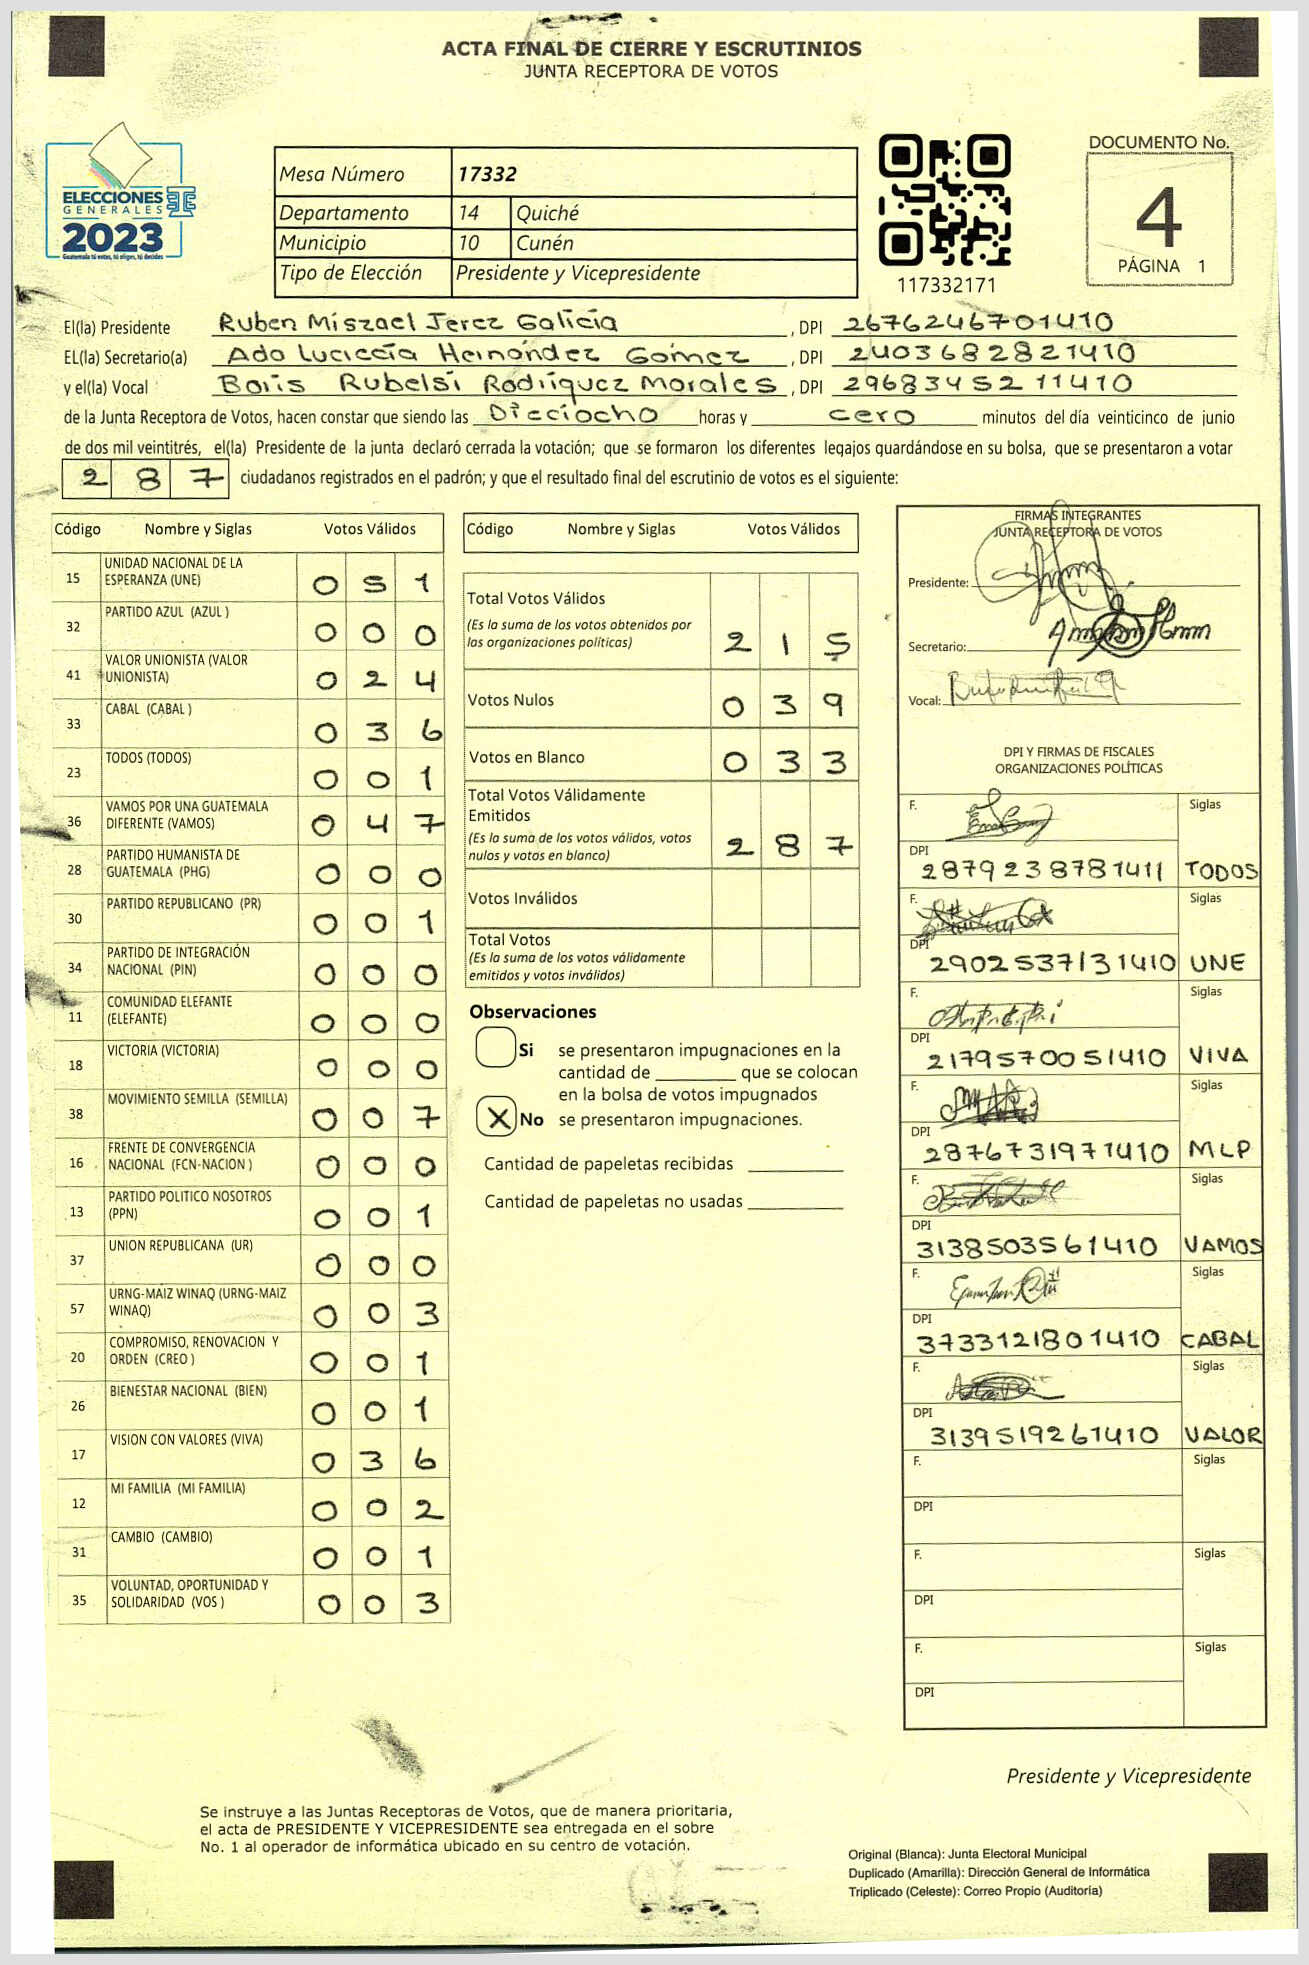 ACTA FINAL DE CIERRE Y ESCRUTINIOS
JUNTA RECEPTORA DE VOTOS
ELECCIONES
GENERALES
2023
Guatemala tú votas, tú eliges, tú decides
Mesa Número 17332
Departamento 14 Quiché
Municipio 10 Cunén
Tipo de Elección Presidente y Vicepresidente
117332171
DOCUMENTO No.
4
PÁGINA 1
El(la) Presidente Ruben Miszael Jerez Galicia, DPI 2676246701410
EL(la) Secretario(a) Ado Luciccia Hernóndez Gómez, DPI 2403682821410
y el(la) Vocal Boris Rubelsi Rodriquez Morales, DPI 2968345211410
de la Junta Receptora de Votos, hacen constar que siendo las Dieciocho horas y cero minutos del día veinticinco de junio
de dos mil veintitrés, el(la) Presidente de la junta declaró cerrada la votación; que se formaron los diferentes legajos guardándose en su bolsa, que se presentaron a votar
2 8 7 ciudadanos registrados en el padrón; y que el resultado final del escrutinio de votos es el siguiente:
Código Nombre y Siglas Votos Válidos
15 UNIDAD NACIONAL DE LA
ESPERANZA (UNE) 0 5 1
32 PARTIDO AZUL (AZUL ) 0 0 0
41 VALOR UNIONISTA (VALOR
UNIONISTA) 0 2 4
33 CABAL (CABAL ) 0 3 6
23 TODOS (TODOS) 0 0 1
36 VAMOS POR UNA GUATEMALA
DIFERENTE (VAMOS) 0 4 7
28 PARTIDO HUMANISTA DE
GUATEMALA (PHG) 0 0 0
30 PARTIDO REPUBLICANO (PR) 0 0 1
34 PARTIDO DE INTEGRACIÓN
NACIONAL (PIN) 0 0 0
11 COMUNIDAD ELEFANTE
(ELEFANTE) 0 0 0
18 VICTORIA (VICTORIA) 0 0 0
38 MOVIMIENTO SEMILLA (SEMILLA) 0 0 7
16 FRENTE DE CONVERGENCIA
NACIONAL (FCN-NACION ) 0 0 0
13 PARTIDO POLITICO NOSOTROS
(PPN) 0 0 1
37 UNION REPUBLICANA (UR) 0 0 0
57 URNG-MAIZ WINAQ (URNG-MAIZ
WINAQ) 0 0 3
20 COMPROMISO, RENOVACION Y
ORDEN (CREO ) 0 0 1
26 BIENESTAR NACIONAL (BIEN) 0 0 1
17 VISION CON VALORES (VIVA) 0 3 6
12 MI FAMILIA (MI FAMILIA) 0 0 2
31 CAMBIO (CAMBIO) 0 0 1
35 VOLUNTAD, OPORTUNIDAD Y
SOLIDARIDAD (VOS ) 0 0 3
Código Nombre y Siglas Votos Válidos
Total Votos Válidos
(Es la suma de los votos obtenidos por
las organizaciones políticas) 2 1 5
Votos Nulos 0 3 9
Votos en Blanco 0 3 3
Total Votos Válidamente
Emitidos
(Es la suma de los votos válidos, votos
nulos y votos en blanco) 2 8 7
Votos Inválidos
Total Votos
(Es la suma de los votos válidamente
emitidos y votos inválidos)
Observaciones
Si se presentaron impugnaciones en la
cantidad de ________ que se colocan
en la bolsa de votos impugnados
X No se presentaron impugnaciones.
Cantidad de papeletas recibidas
Cantidad de papeletas no usadas
FIRMAS INTEGRANTES
JUNTA RECEPTORA DE VOTOS
Presidente:
Secretario:
Vocal:
DPI Y FIRMAS DE FISCALES
ORGANIZACIONES POLÍTICAS
F. Siglas
DPI 2879238781411 TODOS
F. Siglas
DPI 2902537131410 UNE
F. Siglas
DPI 2179570051410 VIVA
F. Siglas
DPI 2876731971410 MLP
F. Siglas
DPI 3138503561410 VAMOS
F. Siglas
DPI 3733121801410 CABAL
F. Siglas
DPI 3139519261410 VALOR
F. Siglas
DPI
F. Siglas
DPI
F. Siglas
DPI
Presidente y Vicepresidente
Se instruye a las Juntas Receptoras de Votos, que de manera prioritaria,
el acta de PRESIDENTE Y VICEPRESIDENTE sea entregada en el sobre
No. 1 al operador de informática ubicado en su centro de votación.
Original (Blanca): Junta Electoral Municipal
Duplicado (Amarilla): Dirección General de Informática
Triplicado (Celeste): Correo Propio (Auditoría)